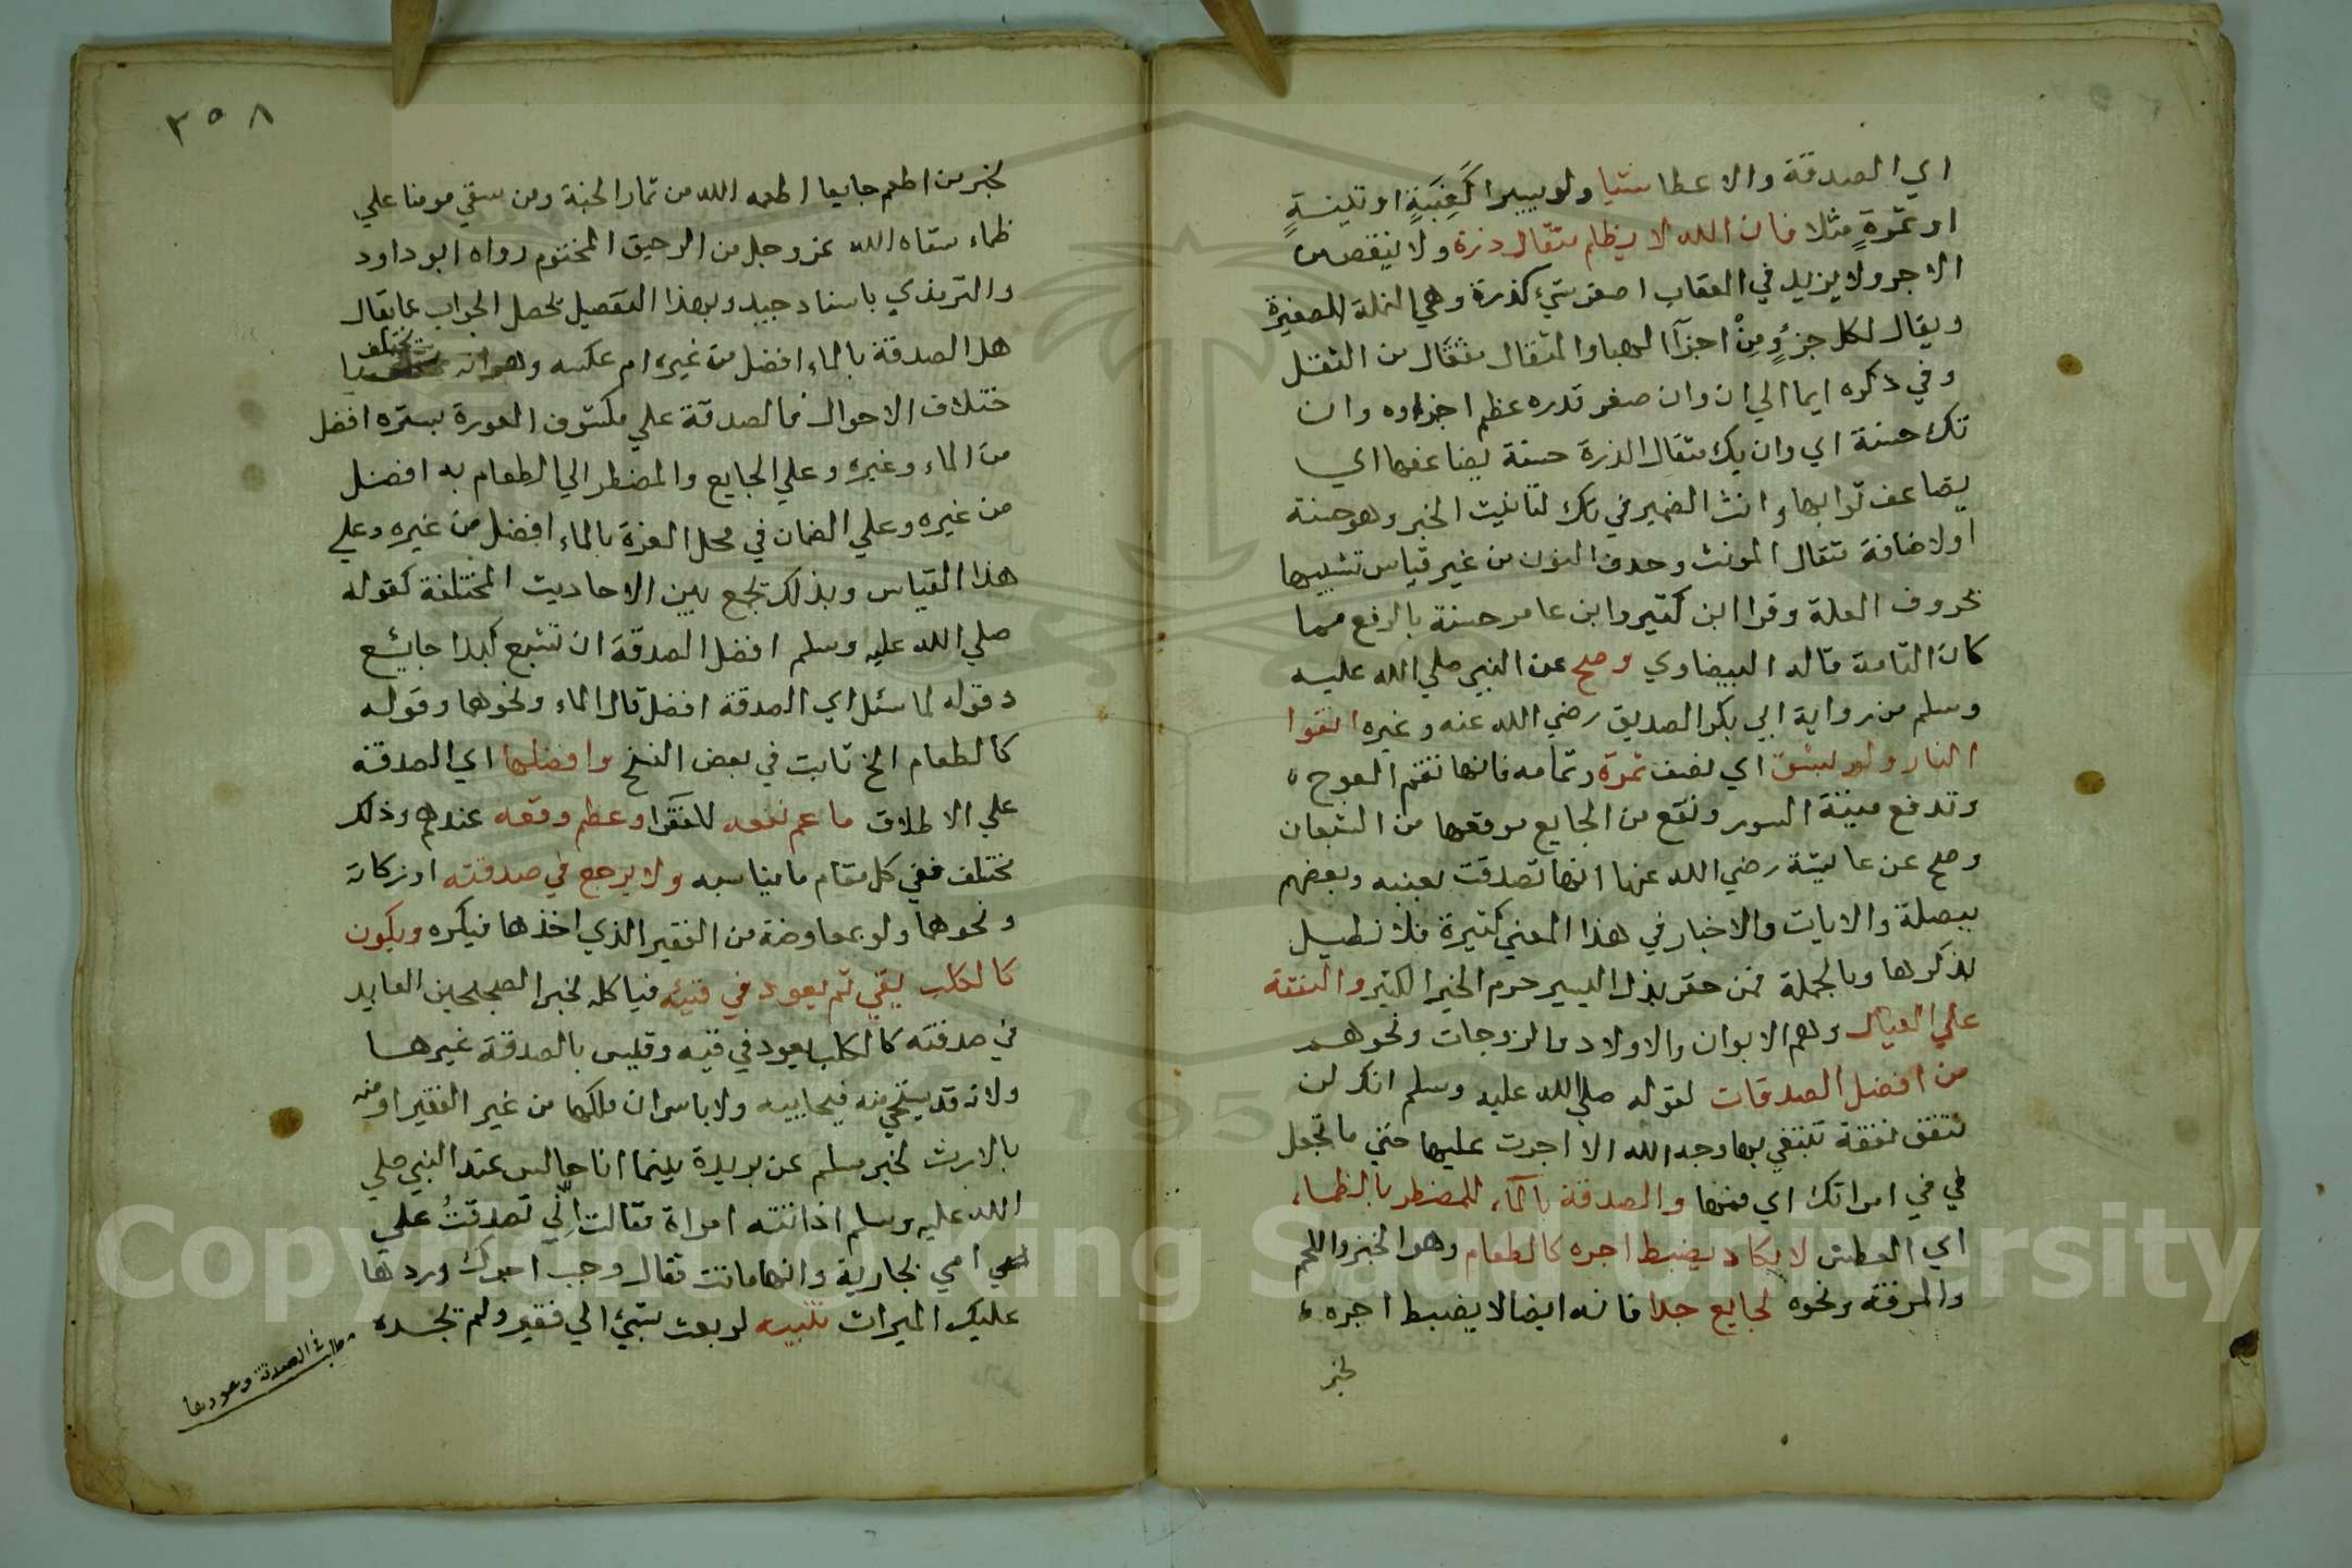 اي الصدقة والاعطا شيا ولو يسيرا كَعِنَبَةٍ او تينةٍ
او تمرةٍ مثلا فان الله لا يظلم مثقال ذرة ولا ينقص من
الاجر ولا يزيد في العقاب اصغر شيء كذرة وهي النملة الصغيرة
ويقال لكل جزءٍ مِنْ اجزآ الهبا والمثقال مفعال من الثقل
وفي ذكره ايما الي ان وان صغر قدره عظم اجزاوه وان
تك حسنة اي وان يك مثقال الذرة حسنة يضاعفها اي
يضاعف ثوابها وانث الضمير في تك لتانيث الخبر وهو حسنة
اولاضافة مثقال المونث وحذف النون من غير قياس تشبيها
بحروف العلة وقرا ابن كثير وابن عامر حسنة بالرفع مما
كان التامة قاله البيضاوي وصح عن النبي صلي الله عليه
وسلم من رواية ابي بكر الصديق رضي الله عنه وغيره اتقوا
النار ولو بشق اي نصف تمرة وتمامه فانها تقيم العوج
وتدفع ميتة السوء وتقع من الجايع موقعها من الشبعان
وصح عن عايشة رضي الله عنها انها تصدقت بعنبه وبعضهم
ببصلة والايات والاخبار في هذا المعني كثيرة فلا نطيل
بذكرها وبالجملة فمن حقر بذل اليسير حرم الخير الكثير والنفقة
علي العيال وهم الابوان والاولاد والزوجات ونحوهم
من افضل الصدقات لقوله صلي الله عليه وسلم انك لن
تنفق نفقة تبتغي بها وجه الله الا اجرت عليها حتي ما تجعل
في في امراتك اي فمها والصدقة بالمآء للمضطر بالظماء
اي العطش لا يكاد يضبط اجره كالطعام وهو الخبز واللحم
والمرقة ونحوه لجايع جدا فانه ايضا لا يضبط اجره
لخبر
٣٥٨
لخبر من اطعم جايعا اطعمه الله من ثمار الجنة ومن سقي مومنا علي
ظماء سقاه الله عز وجل من الرحيق المختوم رواه ابو داود
والترمذي باسناد جيد وبهذا التفصيل يحصل الجواب عما يقال
هل الصدقة بالماء افضل من غيره ام عكسه وهو انه يختلف با
ختلاف الاحوال فالصدقة علي مكشوف العورة بستره افضل
من الماء وغيره وعلي الجايع والمضطر الي الطعام به افضل
من غيره وعلي الضمان في محل العزة بالماء افضل من غيره وعلي
هذا القياس وبذلك تجمع بين الاحاديث المختلفة كقوله
صلي الله عليه وسلم افضل الصدقة ان تشبع كبدا جايع
وقوله لما سئل اي الصدقة افضل قال الماء ونحوها وقوله
كالطعام الخ ثابت في بعض النسخ وافضلها اي الصدقة
علي الاطلاق ما عم نفعه للفقرا وعظم وقعه عندهم وذلك
مختلف ففي كل مقام ما يناسبه ولا يرجع في صدقته او زكاته
ونحوها ولو بمعاوضة من الفقير الذي اخذها فيكره ويكون
كالكلب يقي ثم يعود في قيئه فياكله لخبر الصحيحين العايد
في صدقته كالكلب يعود في قيه وقيس بالصدقة غيرها
ولانه قد يستحي منه فيحابيه ولا باس ان ملكها من غير الفقير او منه
بالارث لخبر مسلم عن بريدة بينما انا جالس عند النبي صلي
الله عليه وسلم اذ اتته امراة فقالت اِنّي تصدقتُ علي
امي بجارية وانها ماتت فقال وجب اجرك وردها
عليك الميراث تنبيه لو بعث بشيء الي فقير ولم يجده
مطلب في الصدقة وعودها
Copyright © King Saud University
195